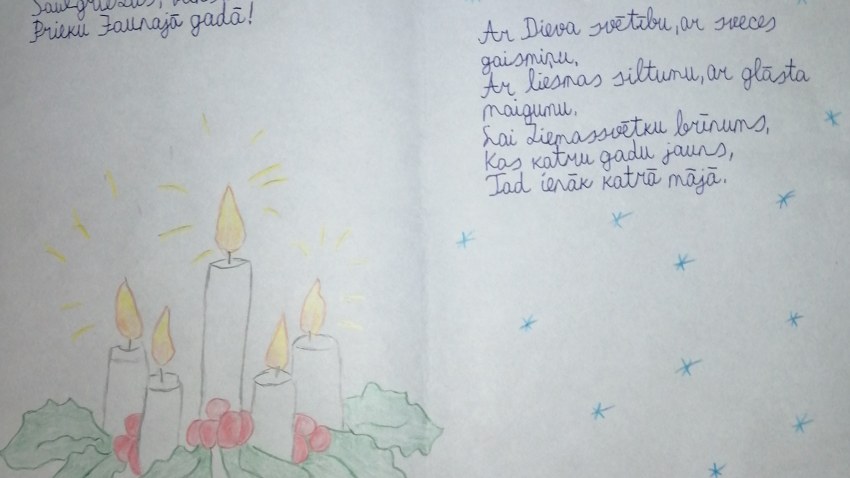 Prieku Jaunajā gadā!
Ar Dieva svētību, ar sveces
gaismiņu,
Ar liesmas siltumu, ar glāsta
maigumu,
Lai Ziemassvētku brīnums,
Kas katru gadu jauns,
Tad ienāk katrā mājā.